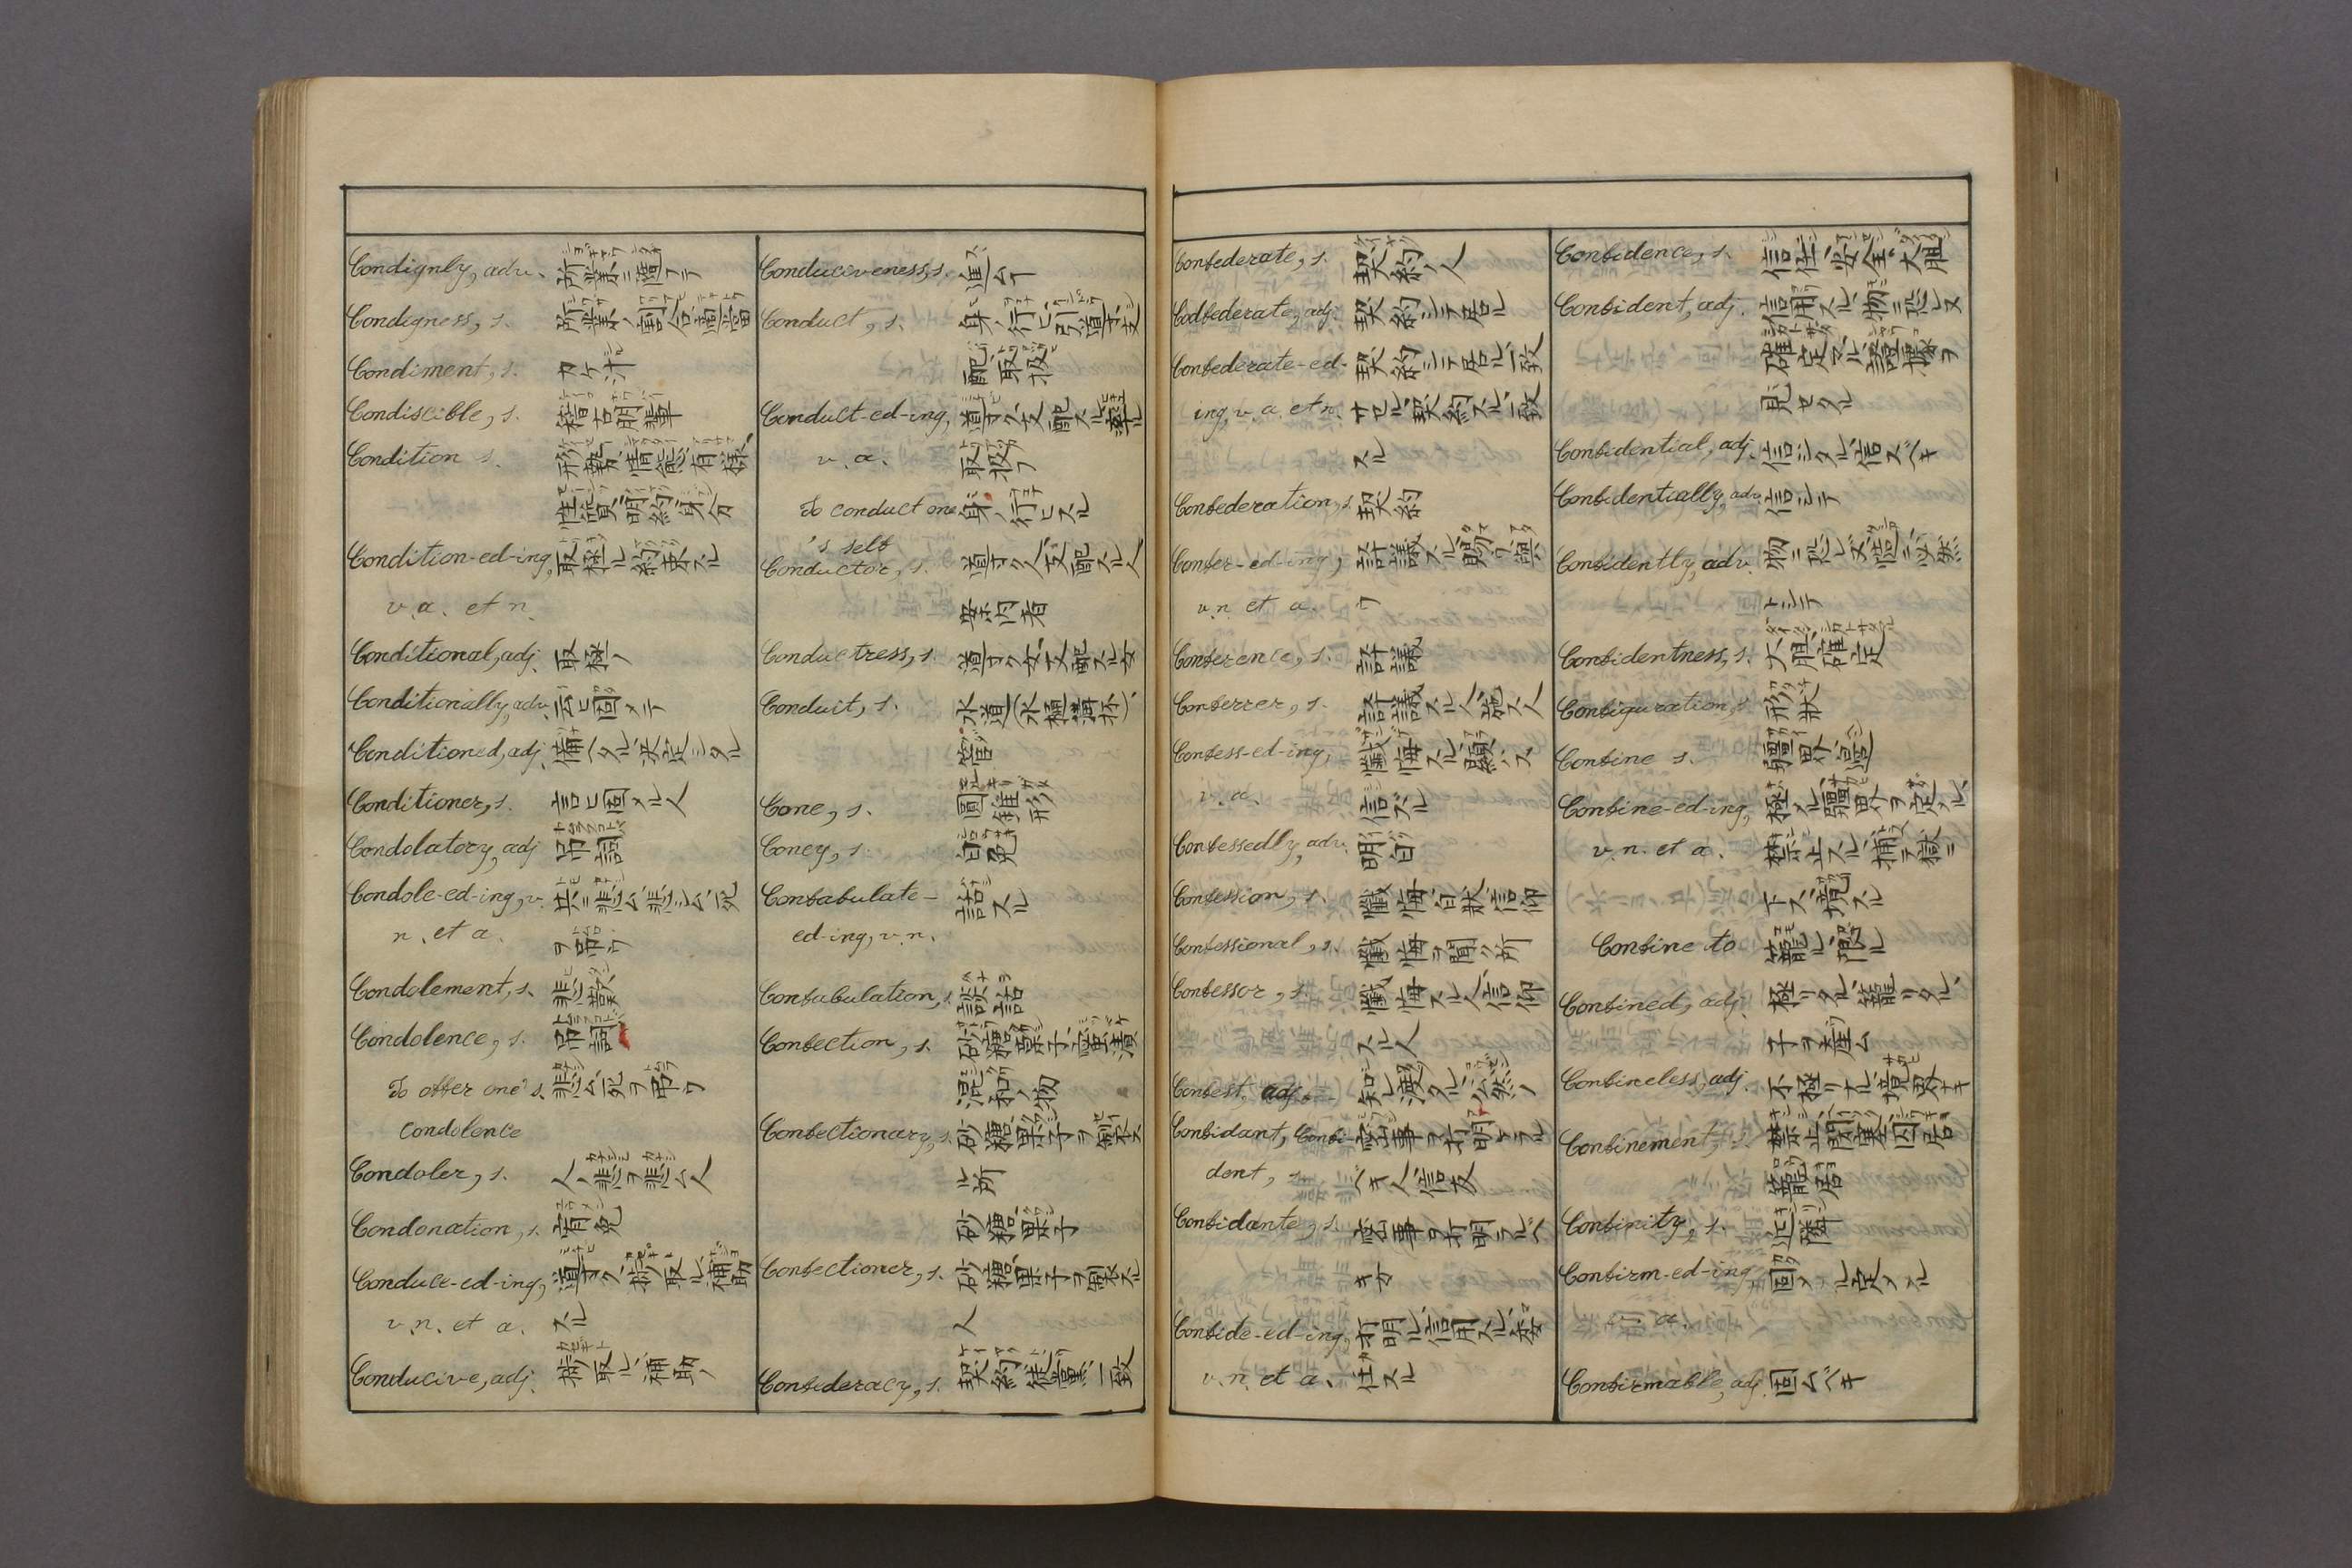 Condignly, adv. 所業ニ随フテ
Condigness, s. 所業ノ割合、適當
Condiment, s. カケ汁
Condiscible, s. 稽古朋輩
Condition s. 形勢、情態、有様、
性質、明約、身分
Condition-ed-ing, 取極ル、約束スル
v. a. et n.
Conditional, adj. 取極ノ
Conditionally, adv. 云ヒ固メテ
Conditioned, adj. 備ヘタル、決定シタル
Conditioner, s. 言ヒ固メル人
Condolatory, adj 吊詞
Condole-ed-ing, v. 共ニ悲ム、悲シム、死
n. et a. ヲ吊ウ
Condolement, s. 悲歎
Condolence, s. 吊詞
To offer one's 悲ム、死ヲ吊ウ
condolence
Condoler, s. 人ノ悲ヲ悲ム人
Condonation, s. 宥免
Conduce-ed-ing, 導ク、捗取ル、補助
v. n. et a. スル
Conducive, adj. 捗取ル、補助ノ
Conduciveness, s. 進ムヿ
Conduct, s. 身ノ行ヒ、引導、支
配、取扱
Conduct-ed-ing, 導ク、支配スル、率ル
v. a. 取扱フ
To conduct one 身ノ行ヒスル
's self
Conductor, s. 導ク人、支配スル人
案内者
Conductress, s. 導ク女、支配スル女
Conduit, s. 水道(水樋溝抔)、
管
Cone, s. 圓錐形
Coney, s. 白兔
Confabulate- 話スル
ed-ing, v. n.
Confabulation, s. 談話
Confection, s. 砂糖菓子、蜜漬
混和ノ物
Confectionary, s. 砂糖菓子ヲ製ス
ル所
砂糖菓子
Confectioner, s. 砂糖菓子ヲ製スル
人
Confederacy, s. 契約、徒黨、一致
Confederate, s. 契約ノ人
Codfederate, adj. 契約シテ居ル
Confederate-ed- 契約シテ居ル、一致
ing, v. a. et n. サセル、契約スル、一致
スル
Confederation, s. 契約
Confer-ed-ing, 評議スル、賜ウ、與
v. n. et a. ウ
Conference, s. 評議
Conferrer, s. 評議スル人、施ス人
Confess-ed-ing, 懺悔スル、顕ハス
v. a. 信ズル
Confessedly, adv. 明白
Confession, s. 懺悔、白狀、信仰
Confessional, s. 懺悔ヲ聞ク所
Confessor, s. 懺悔スル人、信仰
スル人
Confest, adj. 知レ渡タル、公然ノ
Confidant, Confi- 密事ヲ打明ケラル
dent, s. ベキ人、信友
Confidante, s. 密事ヲ打明ラルベ
キ女
Confide-ed-ing, 打明ル、信用スル、委
v. n. et a. 任スル
Confidence, s. 信任、安全、大胆
Confident, adj. 信用スル、物ニ恐レヌ
確定スル、證據ヲ
見セタル
Confidential, adj. 信シタル、信ズベキ
Confidentially, adv. 信シテ
Confidently, adv. 物ニ恐レズ、慥ニ、必然
トシテ
Confidentness, s. 大胆、確定
Configuration, s. 形狀
Confine s. 疆界、邉
Confine-ed-ing, 極メル、疆界ヲ定メル、
v. n. et a. 禁止スル、捕テ獄ニ
下ス、境スル
Confine to 籠ル、限ル
Confined, adj. 極リタル、籠リタル、
子ヲ産ム
Confineless, adj. 不極リナル、境界ナキ
Confinement, s. 禁止、閉塞、囚居
籠居
Confinity, s. 近隣
Confirm-ed-ing 固メル、定メル
v. a.
Confirmable, adj. 固ムベキ